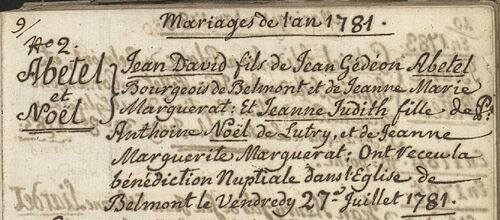 9/
Mariages de l'an 1781.
No 2.
Abetel
et
Noël
Jean David fils de Jean Gédéon Abetel
Bourgeois de Belmont et de Jeanne Marie
Marguerat: Et Jeanne Judith fille de
Anthoine Noël de Lutry, et de Jeanne
Marguerite Marguerat: Ont receu la
bénédiction Nuptiale dans l'Eglise de
Belmont le Vendredy 27e Juillet 1781.